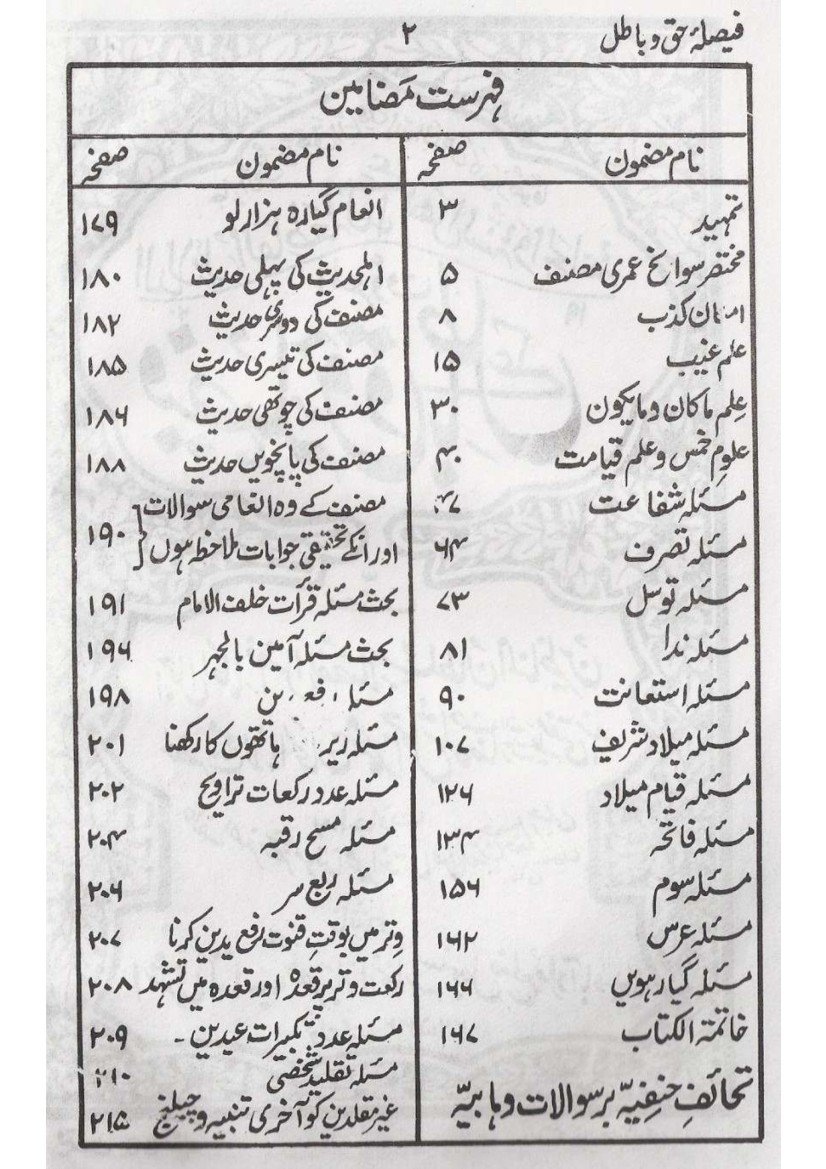 فیصلۂ حق و باطل ۲
فہرست مضامین
نام مضمون صفحہ
تمہید ۳
مختصر سوانح عمری مصنف ۵
امکان کذب ۸
علم غیب ۱۵
عِلم ماکان ومایکون ۳۰
علومِ خمس وعلم قیامت ۴۰
مسئلہ شفاعت ۴۷
مسئلہ تصرف ۶۴
مسئلہ توسل ۷۳
مسئلہ ندا ۸۱
مسئلہ استعانت ۹۰
مسئلہ میلاد شریف ۱۰۷
مسئلہ قیام میلاد ۱۲۶
مسئلہ فاتحہ ۱۳۴
مسئلہ سوم ۱۵۶
مسئلہ عرس ۱۶۲
مسئلہ گیارہویں ۱۶۶
خاتمۃ الکتاب ۱۶۷
تحائفِ حنفیہّ بر سوالات وہابیہّ
نام مضمون صفحہ
انعام گیارہ ہزار لو ۱۷۹
اہلحدیث کی پہلی حدیث ۱۸۰
مصنف کی دوسری حدیث ۱۸۲
مصنف کی تیسری حدیث ۱۸۵
مصنف کی چوتھی حدیث ۱۸۶
مصنف کی پانچویں حدیث ۱۸۸
مصنف کے وہ انعامی سوالات
اور انکے تحقیقی جوابات ملاحظہ ہوں ۱۹۰
بحث مسئلہ قرأت خلف الامام ۱۹۱
بحث مسئلہ آمین بالجہر ۱۹۶
۱۹۸
مسئلہ زیر ہاتھوں کا رکھنا ۲۰۱
مسئلہ عدد رکعات تراویح ۲۰۲
مسئلہ مسح رقبہ ۲۰۴
مسئلہ ربع سر ۲۰۶
وتر میں بوقتِ قنوت رفع یدین کرنا ۲۰۷
رکعت وتر پر قعدہ اور قعدہ میں تشہد ۲۰۸
مسئلہ عدد تکبیرات عیدین - ۲۰۹
مسئلہ تقلید شخصی ۲۱۰
غیر مقلدین کو آخری تنبیہ و چیلنج ۲۱۵